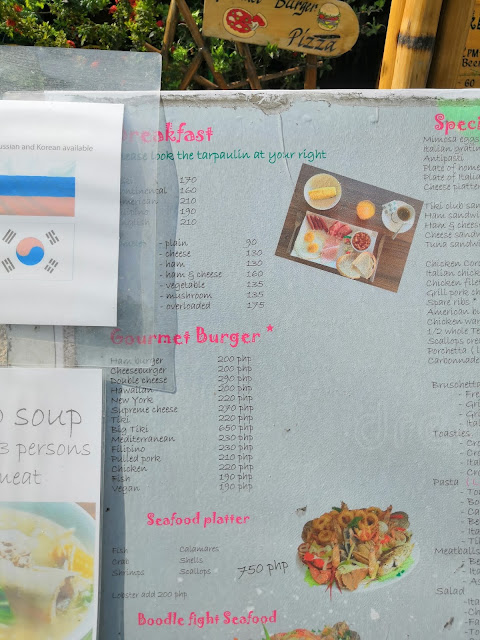 Burger
Pizza
ssian and Korean available
Breakfast
Please look the tarpaulin at your right
170
160
210
190
210
- plain 90
- cheese 130
- ham 130
- ham & cheese 160
- vegetable 135
- mushroom 135
- overloaded 175
Gourmet Burger *
Ham burger 200 php
Cheeseburger 200 php
Double cheese 290 php
Hawaiian 200 php
New York 220 php
Supreme cheese 270 php
Tiki 220 php
Big Tiki 650 php
Mediterranean 230 php
Filipino 230 php
Pulled pork 210 php
Chicken 220 php
Fish 190 php
Vegan 190 php
Seafood platter
Fish Calamares
Crab Shells
Shrimps Scallops
750 php
Lobster add 200 php
Boodle fight Seafood
soup
3 persons
meat
Speci
Mimosa eggs
Italian gratin
Antipasti
Plate of home
Plate of Italia
Cheese platter
Tiki club san
Ham sandwi
Ham & chees
Cheese sandw
Tuna sandw
Chicken Cor
Italian chick
Chicken file
Grill pork ch
Spare ribs *
American bu
Chicken wa
1/2 whole Te
Scallops ore
Porchetta ( l
Carbonnade
Bruschetta
- Fre
- Gri
- Gr
- Ital
Toasties
- Cro
- Cro
- Ital
- Cro
Pasta
- To
- Bo
- Ca
- Be
- Ita
- Ti
Meatballs
- Be
- Ita
- As
Salad
- Ita
- Ch
- Fa
- To